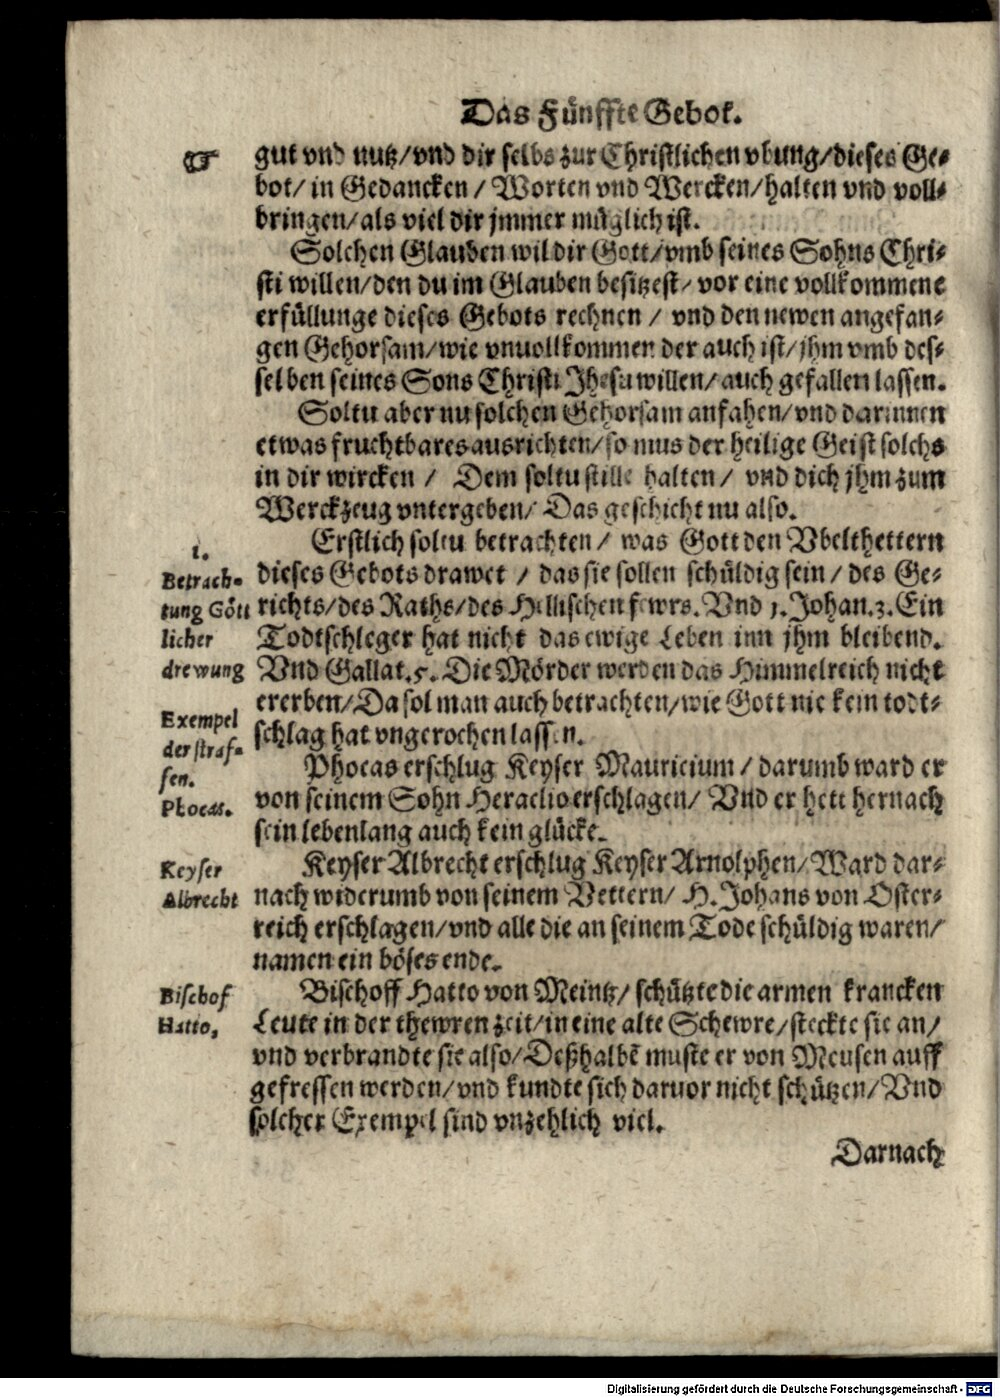 Das Fünffte Gebot.
☞ gut vnd nutz/vnd dir selbs zur Christlichen vbung/dieses Ge-
bot/ in Gedancken / Worten vnd Wercken/halten vnd voll-
bringen/als viel dir jmmer müglich ist.
Solchen Glauben wil dir Gott/vmb seines Sohns Chri-
sti willen/den du im Glauben besitzest/ vor eine vollkommene
erfüllunge dieses Gebots rechnen / vnd den newen angefan-
gen Gehorsam/wie vnuollkommen der auch ist/jhm vmb des-
selben seines Sons Christi Jhesu willen/auch gefallen lassen.
Soltu aber nu solchen Gehorsam anfahen/vnd darinnen
etwas fruchtbares ausrichten/so mus der heilige Geist solchs
in dir wircken / Dem soltu stille halten / vnd dich jhm zum
Werckzeug vntergeben/ Das geschicht nu also.
1.
Betrach-
tung Gött
licher
drewung
Erstlich soltu betrachten / was Gott den Vbelthettern
dieses Gebots drawet / das sie sollen schüldig sein / des Ge-
richts/des Raths/des Hellischen fewrs. Vnd 1. Johan. 3. Ein
Todtschleger hat nicht das ewige Leben inn jhm bleibend.
Vnd Gallat. 5. Die Mörder werden das Himmelreich nicht
ererben/Da sol man auch betrachten/wie Gott nie kein todt-
schlag hat vngerochen lassen.
Exempel
der straf-
fen.
Phocas.
Phocas erschlug Keyser Mauricium / darumb ward er
von seinem Sohn Heraclio erschlagen/ Vnd er hett hernach
sein lebenlang auch kein glücke.
Keyser
Albrecht
Keyser Albrecht erschlug Keyser Arnolphen/Ward dar-
nach widerumb von seinem Vettern/ H. Johans von Oster-
reich erschlagen/vnd alle die an seinem Tode schüldig waren/
namen ein böses ende.
Bischof
Hatto,
Bischoff Hatto von Meintz/ schützte die armen krancken
Leute in der thewren zeit/in eine alte Schewre/steckte sie an/
vnd verbrandte sie also/Deßhalbē muste er von Meusen auff
gefressen werden/vnd kundte sich daruor nicht schützen/Vnd
solcher Exempel sind vnzehlich viel.
Darnach
Digitalisierung gefördert durch die Deutsche Forschungsgemeinschaft - DFG